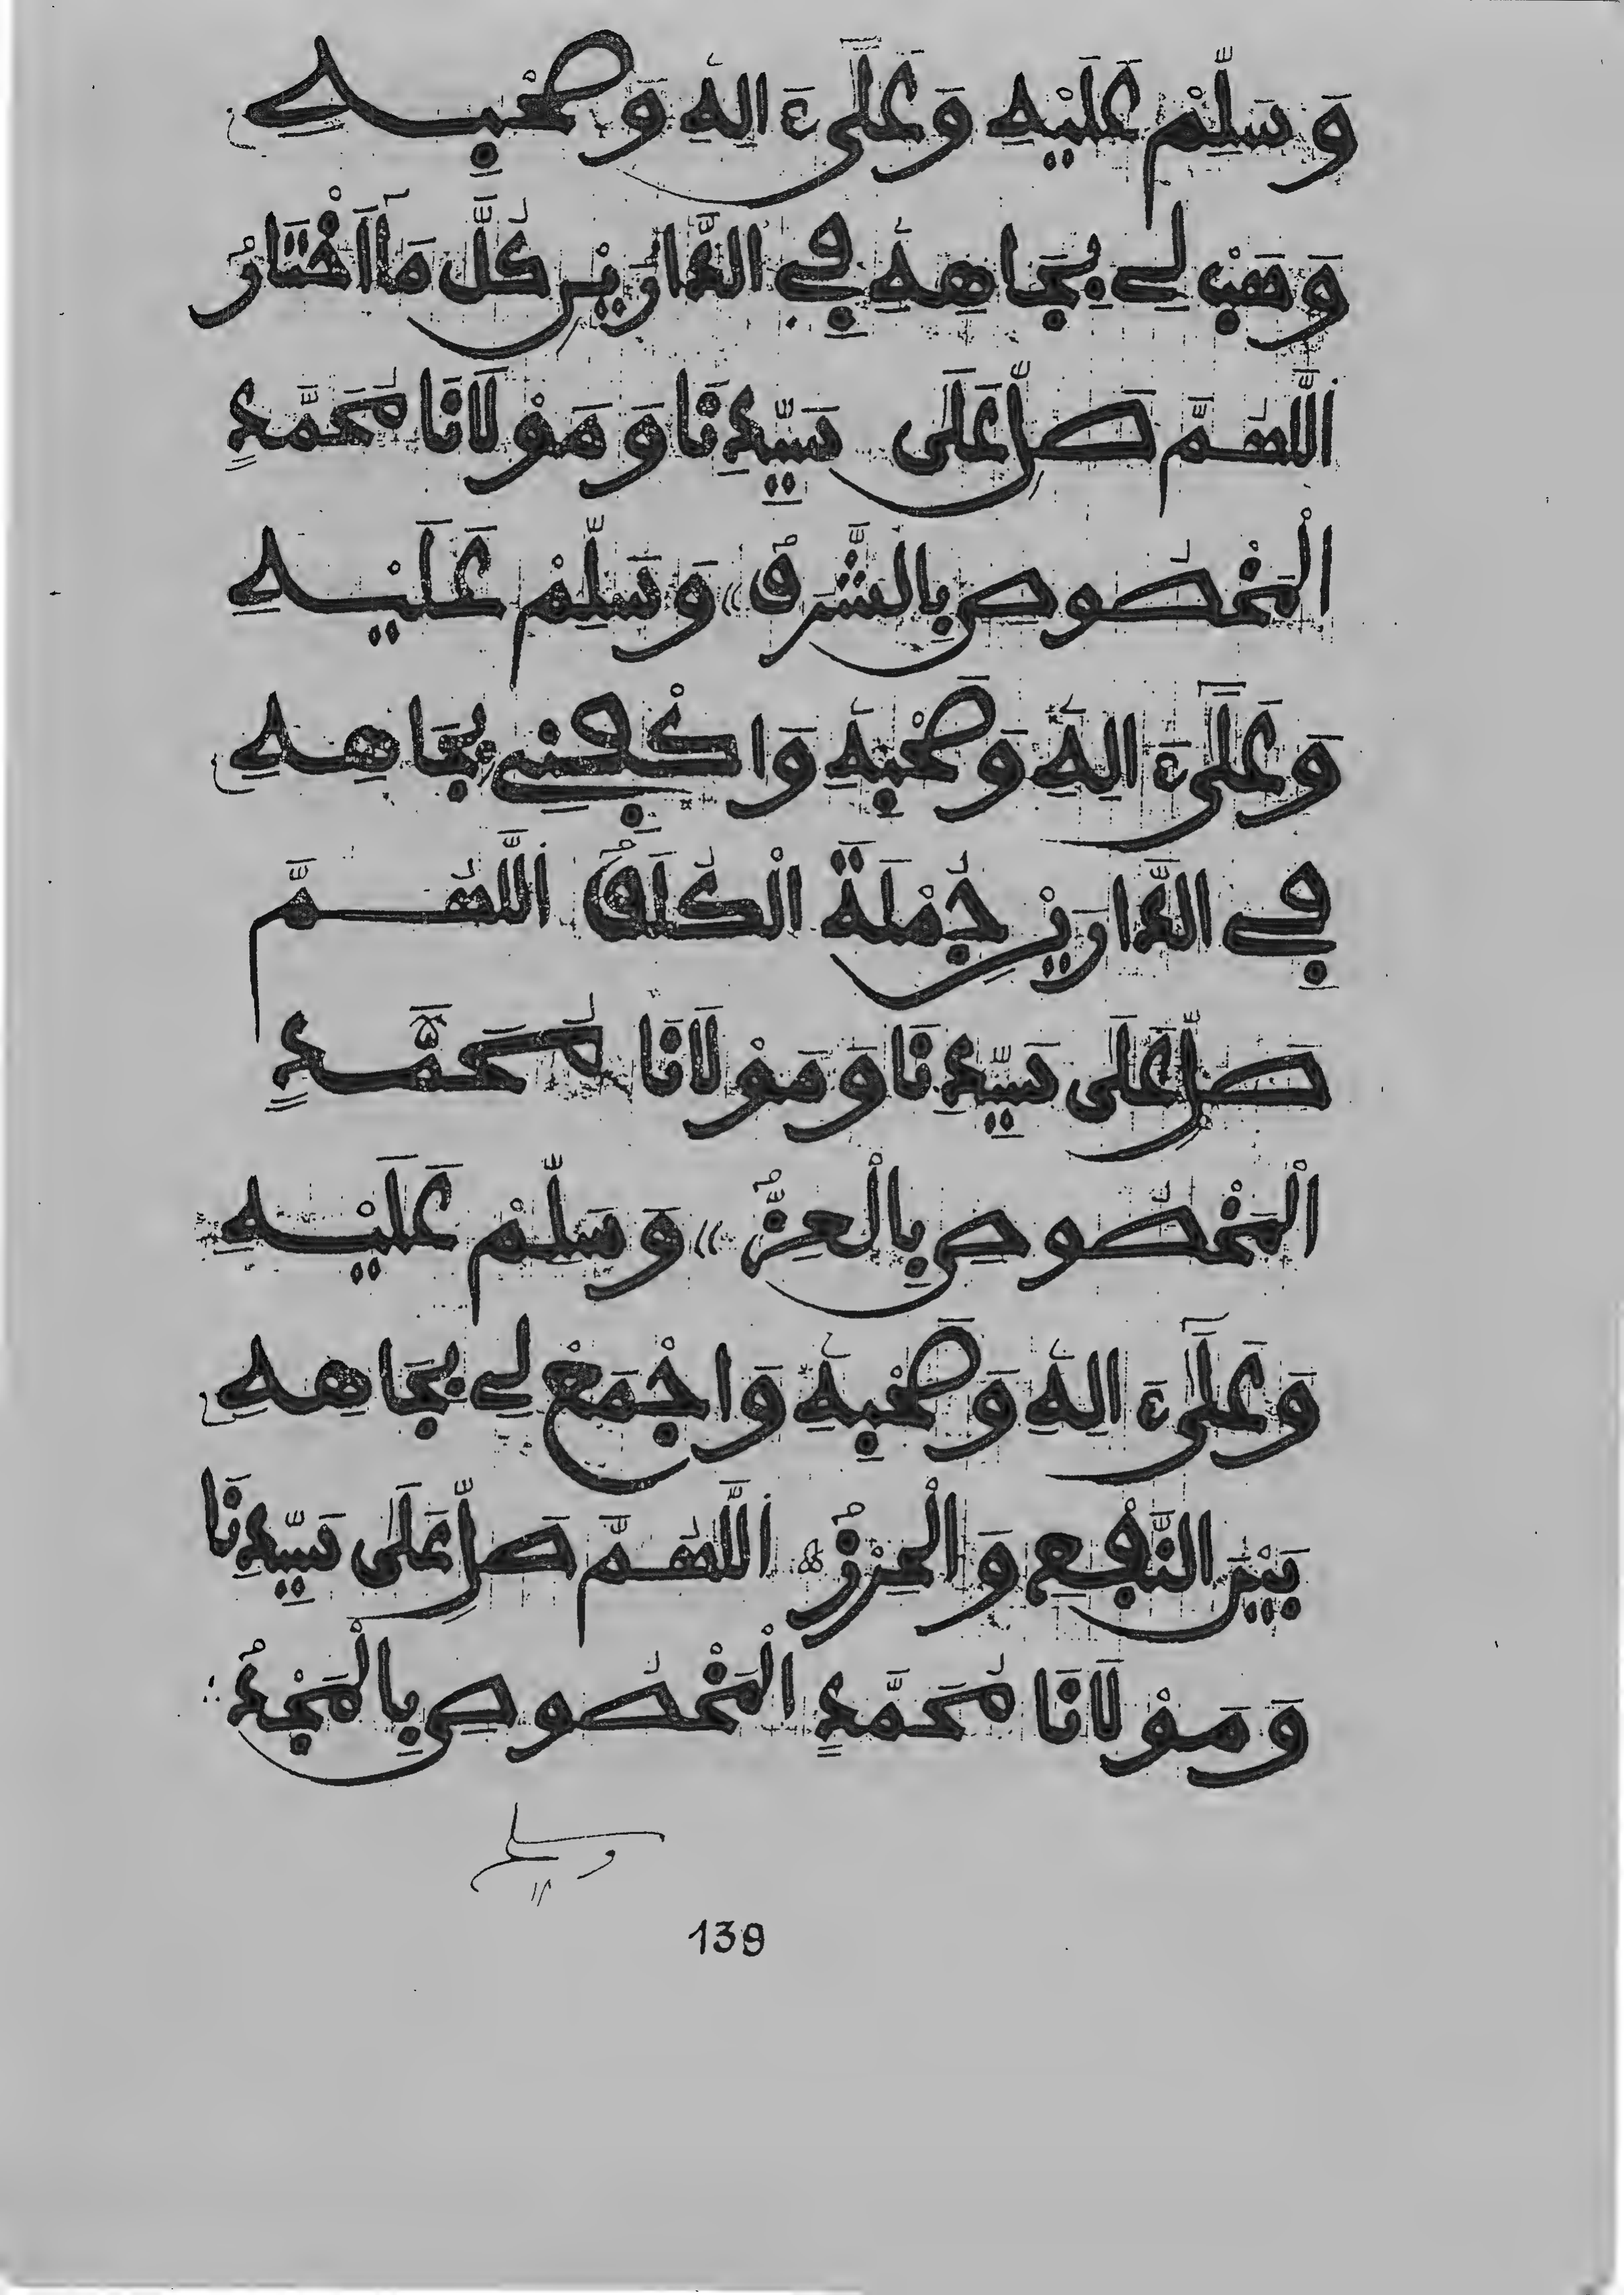 وَسَلِّمْ عَلَيْهِ وَعَلَىٰٓ ءَالِهِ وَصَحْبِهِ
وَهَبْ لِي بِجَاهِهِ فِي الدَّارَيْنِ كُلَّ مَآ أَخْتَارُ
اَللَّهُمَّ صَلِّ عَلَى سَيِّدِنَا وَمَوْلَانَا مُحَمَّدٍ
الْمَخْصُوصِ بِالشَّرَفِ وَسَلِّمْ عَلَيْهِ
وَعَلَىٰٓ ءَالِهِ وَصَحْبِهِ وَاكْفِنِي بِجَاهِهِ
فِي الدَّارَيْنِ جُمْلَةَ الْكُلَفِ اَللَّهُمَّ
صَلِّ عَلَى سَيِّدِنَا وَمَوْلَانَا مُحَمَّدٍ
الْمَخْصُوصِ بِالْعِزِّ وَسَلِّمْ عَلَيْهِ
وَعَلَىٰٓ ءَالِهِ وَصَحْبِهِ وَاجْمَعْ لِي بِجَاهِهِ
بَيْنَ النَّفْعِ وَالْحِرْزِ اَللَّهُمَّ صَلِّ عَلَى سَيِّدِنَا
وَمَوْلَانَا مُحَمَّدٍ الْمَخْصُوصِ بِالْمَجْدِ
وسلم
139